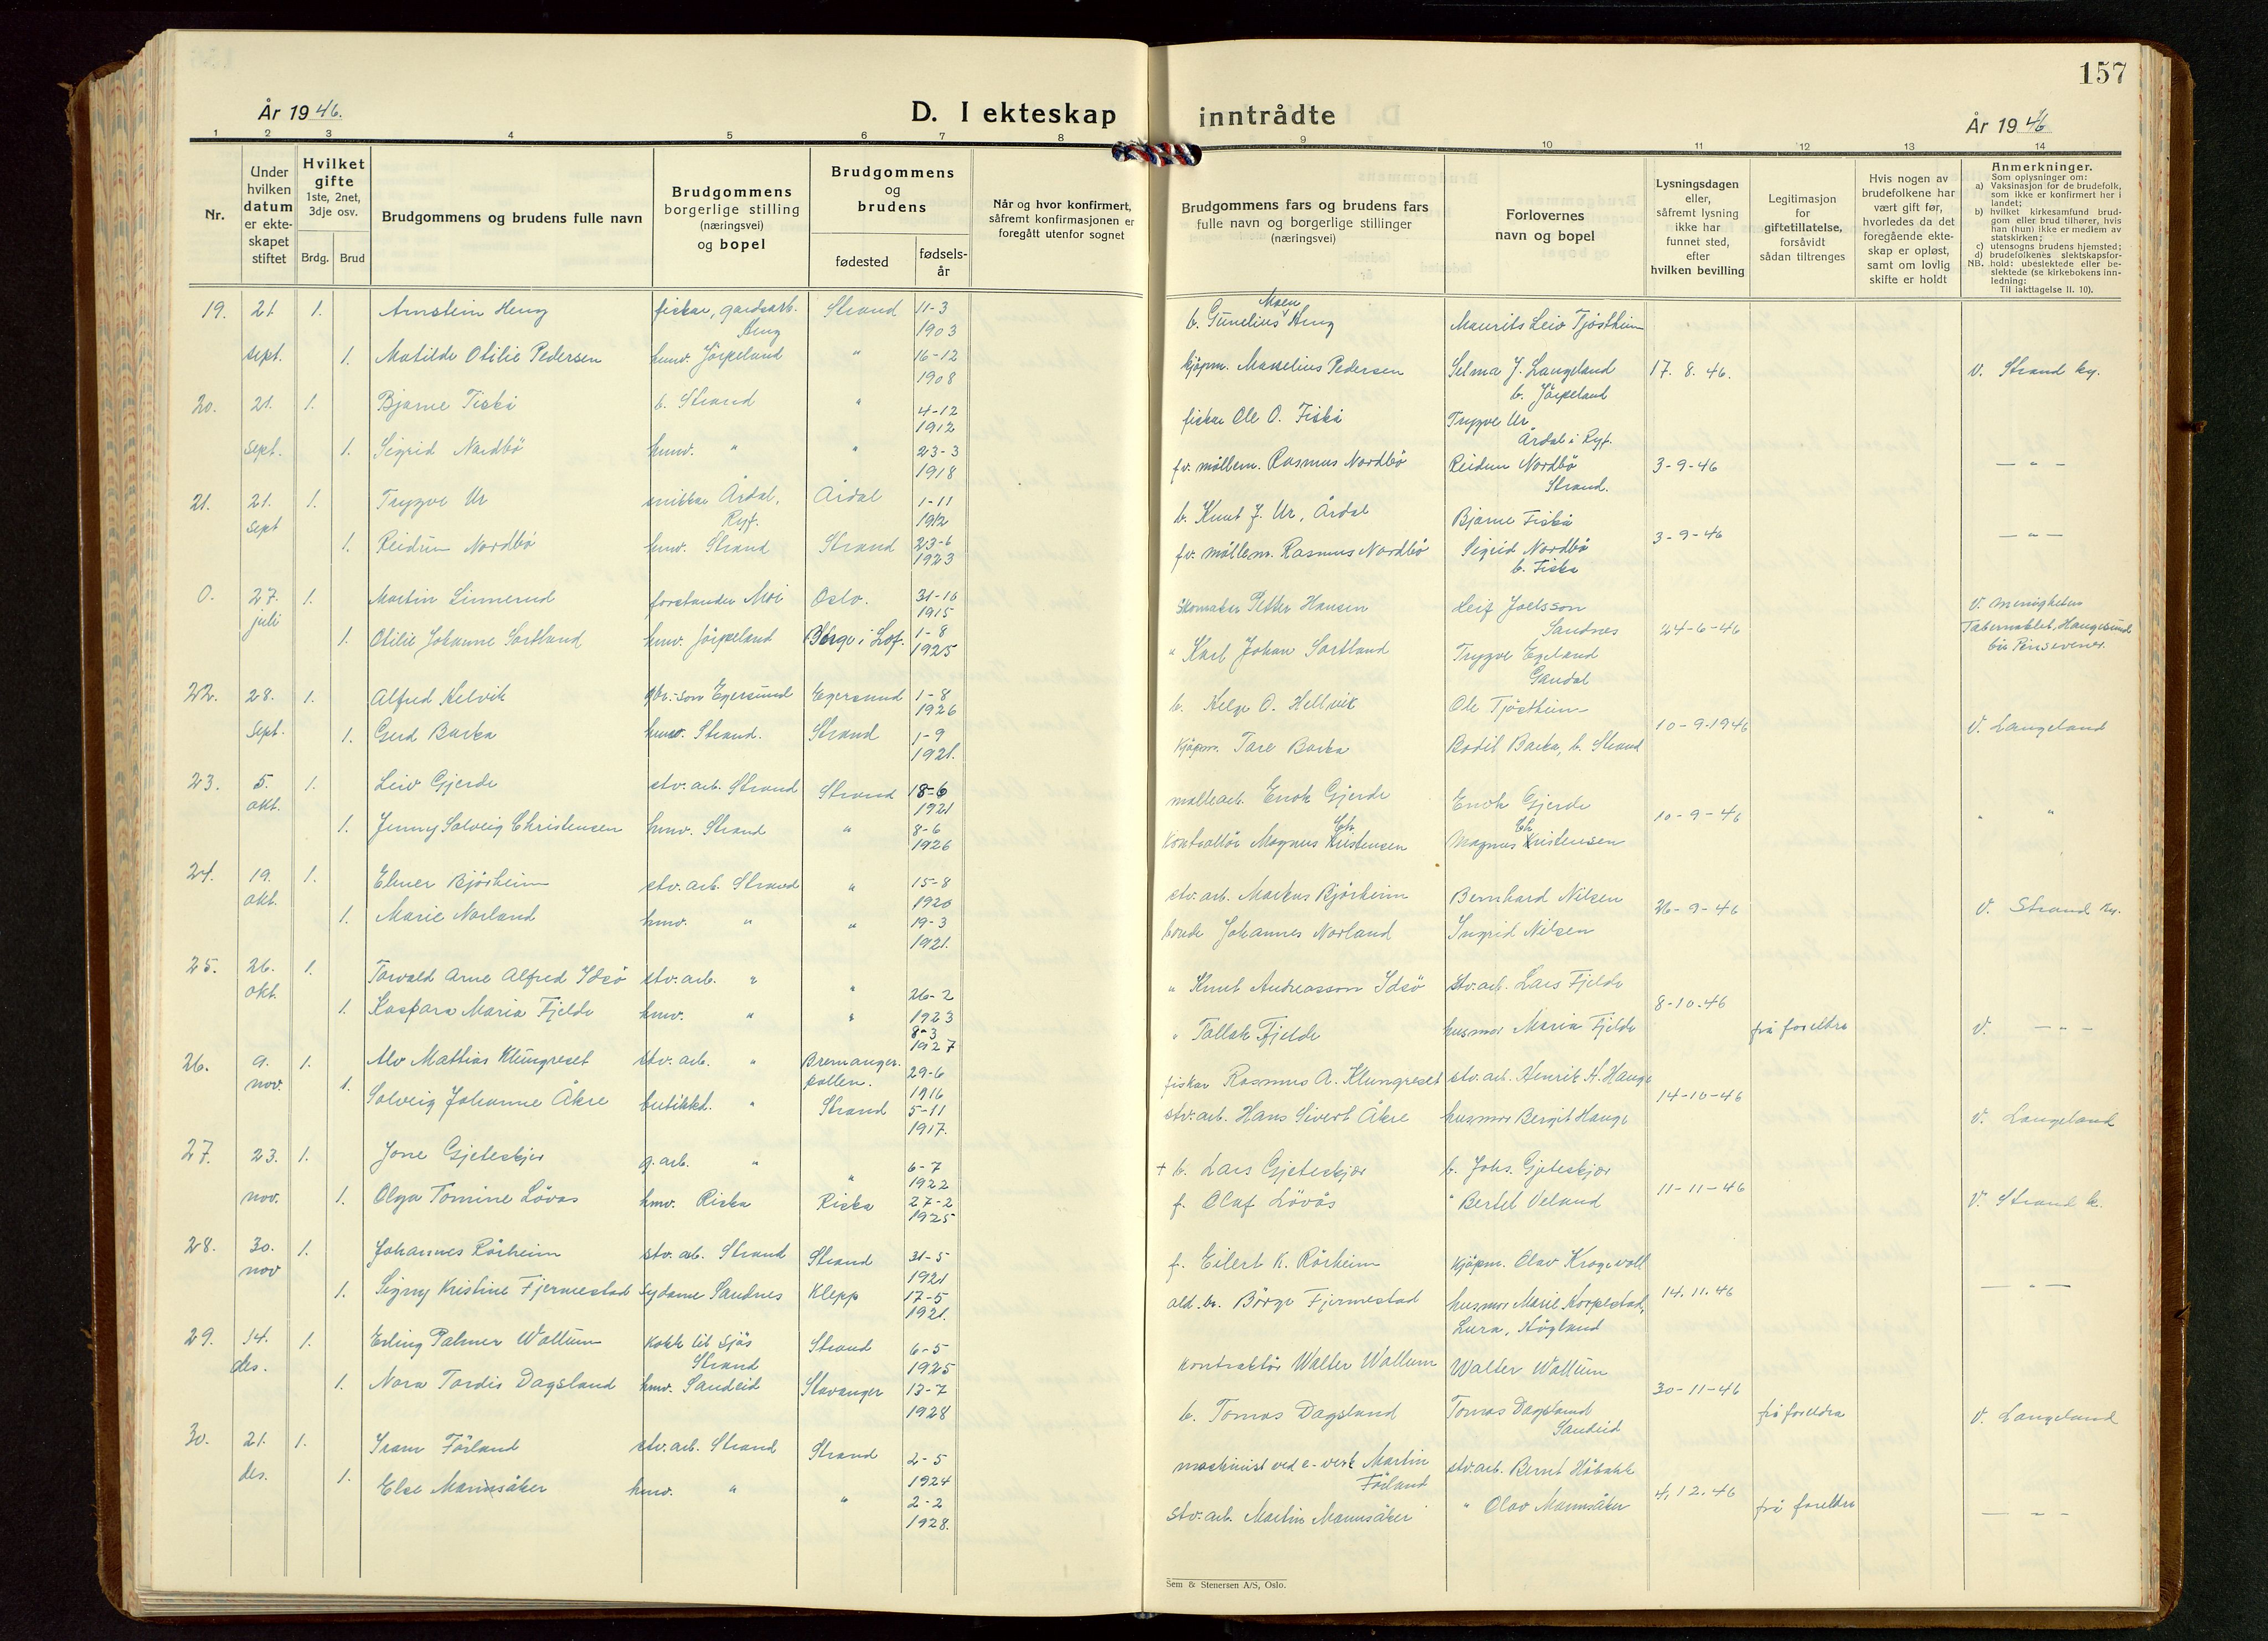 157
År 1946.
D. I ekteskap inntrådte
År 1946
1 2 3 4 5 6 7 8 9 10 11 12 13 14
Nr.
Under hvilken datum er ekteskapet stiftet
Hvilket gifte 1ste, 2net, 3dje osv.
Brdg. Brud
Brudgommens og brudens fulle navn
Brudgommens borgerlige stilling (næringsvei) og bopel
Brudgommens og brudens
fødested
fødsels-år
Når og hvor konfirmert, såfremt konfirmasjonen er foregått utenfor sognet
Brudgommens fars og brudens fars fulle navn og borgerlige stillinger (næringsvei)
Forlovernes navn og bopel
Lysningsdagen eller, såfremt lysning ikke har funnet sted, efter hvilken bevilling
Legitimasjon for giftetillatelse, forsåvidt sådan tiltrenges
Hvis nogen av brudefolkene har vært gift før, hvorledes da det foregående ekte-skap er opløst, samt om lovlig skifte er holdt
Anmerkninger.
Som oplysninger om:
a) Vaksinasjon for de brudefolk, som ikke er konfirmert her i landet;
b) hvilket kirkesamfund brud-gom eller brud tilhører, hvis han (hun) ikke er medlem av statskirken;
c) utensogns brudens hjemsted;
d) brudefolkenes slektskapsfor-hold: ubeslektede eller be-slektede (se kirkebokens inn-ledning:
NB.
Til iakttagelse II. 10).
19. 21. 1. Arnstein Heng fiskar, gardsarb. Heng Strand 11-3 1903 b. Gunelius Moen Heng Maurits Leiv Tjöstheim
sept. 1. Matilde Otilie Pedersen hmv. Jörpeland " 16-12 1908 kjöpm. Masselius Pedersen Selma J. Langeland b. Jörpeland 17. 8. 46. V. Strand ky.
20. 21. 1. Bjarne Fiskå b. Strand " 4-12 1912 fiskar Ole O. Fiskå Trygve Ur Årdal i Ryf.
sept. 1. Sigrid Nordbö hmv. " " 23-3 1918 fv. möllem. Rasmus Nordbö Reidun Nordbö Strand. 3-9-46 — " —
21. 21. 1. Trygve Ur snikkar Årdal, Ryf. Årdal 1-11 1912 b. Knut J. Ur, Årdal Bjarne Fiskå
sept 1. Reidun Nordbö hmv. Strand Strand 23-6 1923 fv. möllem. Rasmus Nordbö Sigrid Nordbö b. Fiskå 3-9-46 — " —
0. 27. 1. Martin Linnerud forstander Moi Oslo. 31-10 1915 Skomaker Petter Hansen Leif Joelsson Sandnes V. menigheten
juli 1. Otilie Johanne Sortland hmv. Jörpeland Börge i Lof. 1-8 1925 " Karl Johan Sortland Trygve Egeland Gandal 24-6-46 Tabernaklet, Haugesund
22. 28. 1. Alfred Helvik gbr.-son Egersund Egersund 1-8 1926 b. Helge O. Hellvik Ole Tjöstheim
sept. 1. Gerd Barka hmv. Strand. Strand 1-9 1921. Kjöpm. Tore Barka Bodil Barka, b. Strand 10-9-1946 V. Langeland
23. 5. 1. Leiv Gjerde stv. arb. Strand Strand 18-6 1921 möllearb. Enok Gjerde Enok Gjerde
okt. 1. Jenny Solveig Christensen hmv. Strand " 8-6 1926 Kontrollör Magnus Christensen Magnus Christensen 10-9-46 " "
24. 19. 1. Elmer Björheim stv. arb. Strand " 15-8 1920 stv. arb. Markus Björheim Bernhard Nilsen
okt. 1. Marie Norland hmv. " " 19-3 1921. bonde Johannes Norland Ingrid Nilsen 26-9-46 V. Strand ky.
25. 26. 1. Torvald Arne Alfred Idsö stv. arb. " " 26-2 1923 " Knut Andreasson Idsö stv. arb. Lars Fjelde
okt. 1. Kaspara Maria Fjelde hmv. " " 8-3 1927 " Tallak Fjelde husmor Maria Fjelde 8-10-46 frå foreldre V. — " —
26. 9. 1. Alv Mattias Klungreset stv. arb. " Bremangerpollen. 29-6 1916 fiskar Rasmus A. Klungreset stv. arb. Henrik H. Hauge
nov. 1. Solveig Johanne Åkre butikkd. " Strand 5-11 1917. stv. arb. Hans Sivert Åkre husmor Bergit Hauge 14-10-46 V. Langeland
27. 23. 1. Jone Gjeteskjer g. arb. " " 6-7 1922 + b. Lars Gjeteskjær b. Johs. Gjeteskjær
nov. 1. Olga Tomine Lövås hmv. Riska Riska 27-2 1925 f. Olaf Lövås " Bertel Veland 11-11-46 V. Strand k.
28. 30. 1. Johannes Rörheim stv. arb. Strand Strand 31-5 1921 f. Eilert K. Rörheim Kjöpm. Olav Krogevoll
nov 1. Signy Kristine Fjermestad Sydame Sandnes Klepp 17-5 1921. Börge Fjermestad husmor Marie Korpestad, Lura, Högland 14. 11. 46 — " —
29. 14. 1. Erling Palmer Wallum Kokk til sjös Strand Strand 6-5 1925 Kontraktör Walter Wallum Walter Wallum
des. 1. Nora Tordis Dagsland hmv. Sandeid Stavanger 13-7 1928 b. Tomas Dagsland Tomas Dagsland Sandeid 30-11-46 frå foreldre V. Langeland
30. 21. 1. Förland stv. arb. Strand Strand 2-5 1924 maskinist ved e-verk Martin Förland stv. arb. Bernt Håbakk
des. 1. Else Mannsåker hmv. " " 2-2 1928. stv. arb. Martin Mannsåker " Olav Mannsåker 4. 12. 46 frå foreldre — " —
Sem & Stenersen A/S, Oslo.